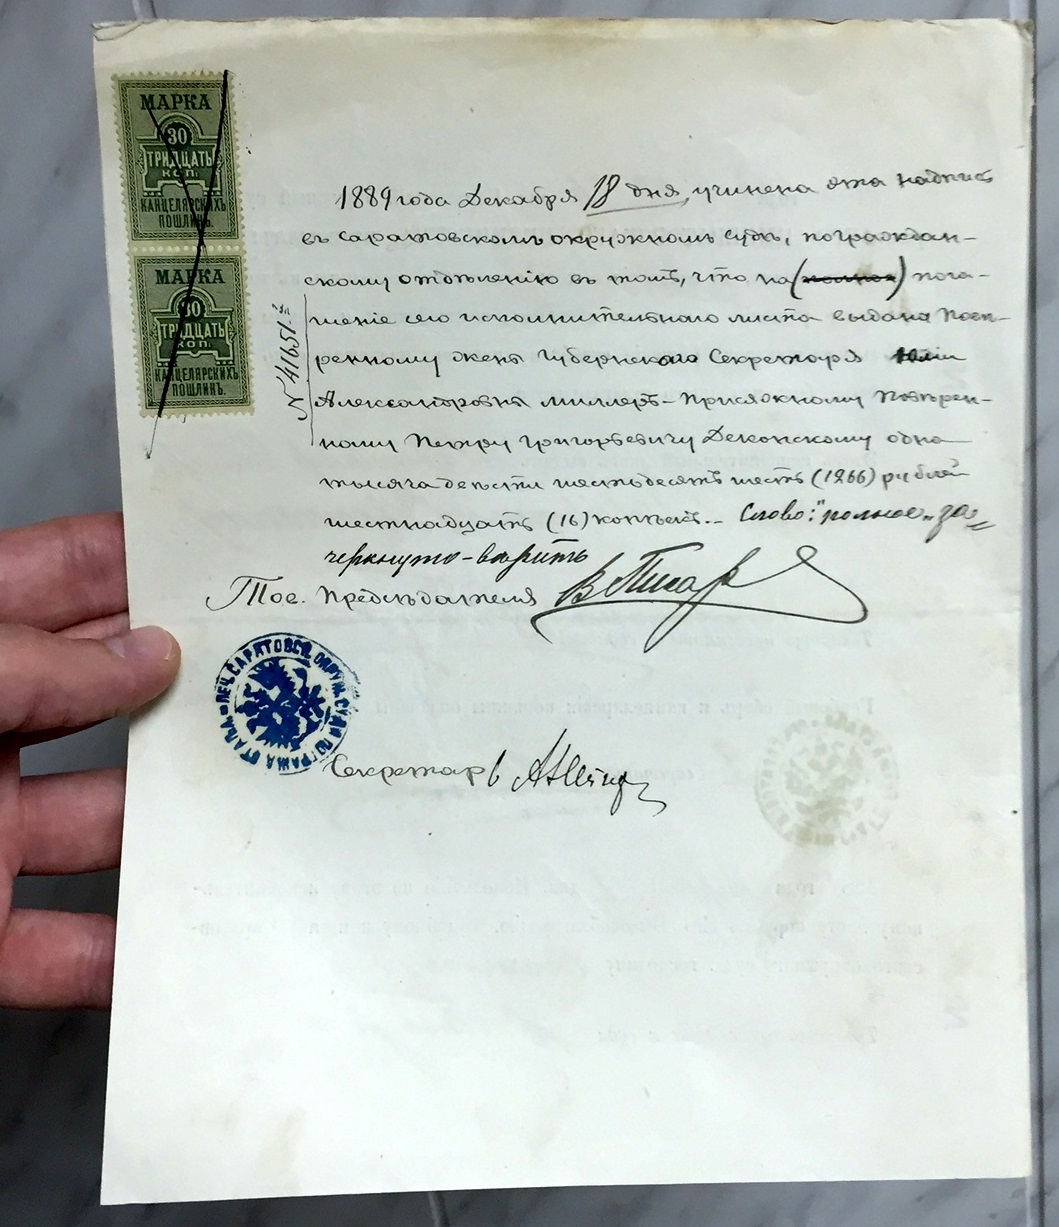 МАРКА
30
ТРИДЦАТЬ
КОП.
КАНЦЕЛЯРСКИХЪ
ПОШЛИНЪ.
МАРКА
30
ТРИДЦАТЬ
КОП.
КАНЦЕЛЯРСКИХЪ
ПОШЛИНЪ.
№ 41651.
1889 года Декабря 18 дня, учинена эта надпись
въ Саратовскомъ окружномъ судѣ, по граждан-
скому отдѣленію въ томъ, что на (полное) пога-
шеніе сего исполнительнаго листа выдана Повѣ-
ренному жены Губернскаго Секретаря Юліи
Александровны Миллеръ - Присяжному Повѣрен-
ному Петру Григорьевичу Деконскому одна
тысяча двѣсти шестьдесятъ шесть (1266) рублей
шестнадцать (16) копѣекъ. - Слово: "полное" за=
черкнуто - вѣрить
Тов. Предсѣдателя
ПЕЧ. САРАТОВСК. ОКРУЖ. СУДА ПО ГРАЖД. ОТДѢЛ.
Секретарь